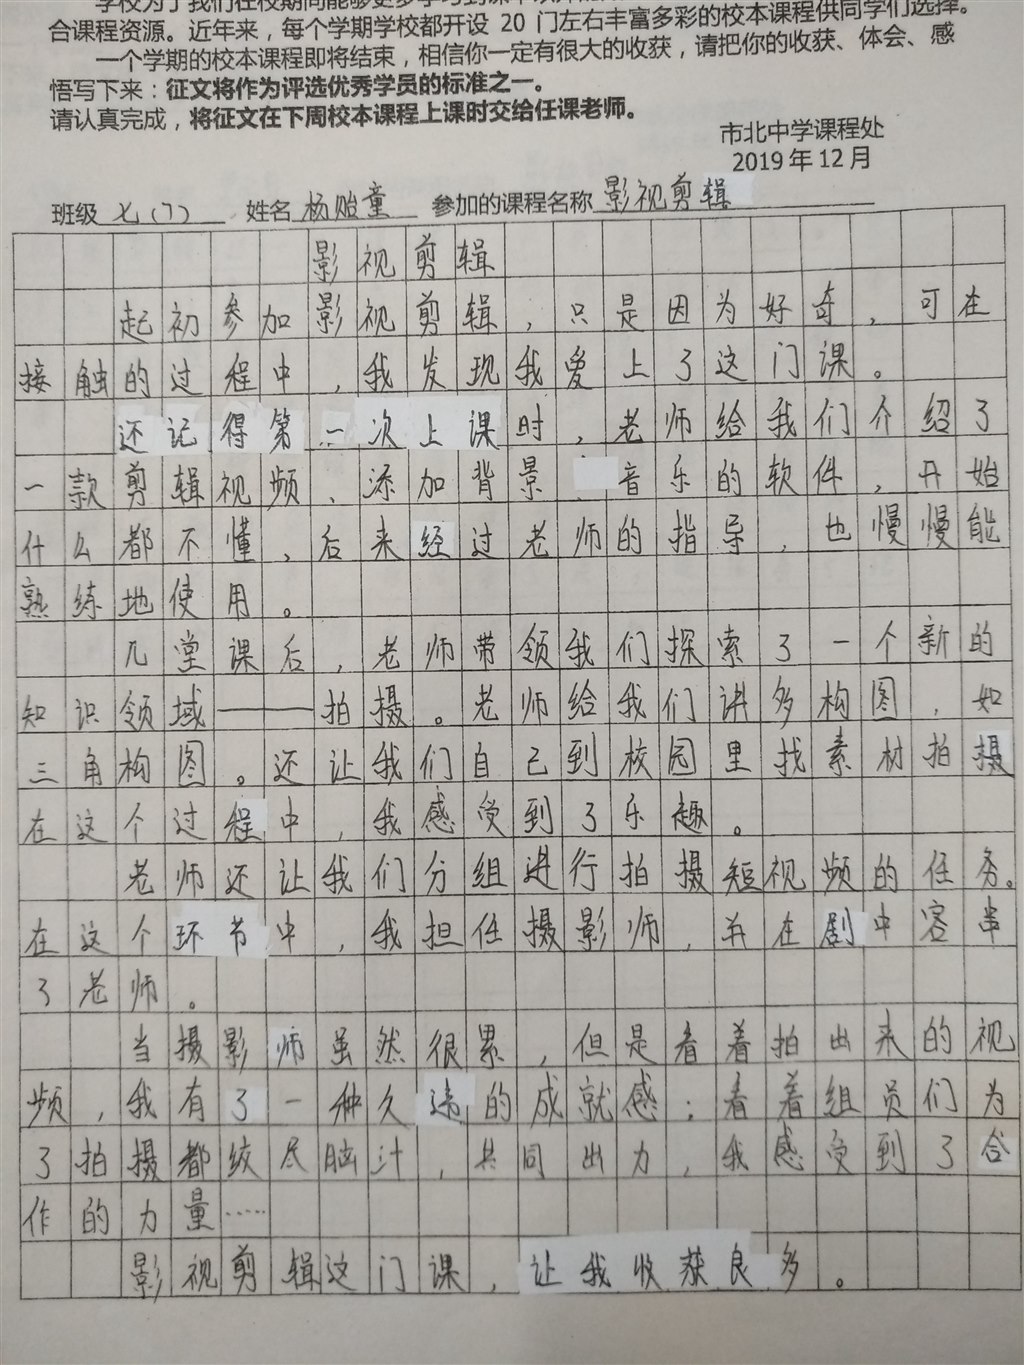 合课程资源。近年来，每个学期学校都开设 20 门左右丰富多彩的校本课程供同学们选择。
一个学期的校本课程即将结束，相信你一定有很大的收获，请把你的收获、体会、感
悟写下来：征文将作为评选优秀学员的标准之一。
请认真完成，将征文在下周校本课程上课时交给任课老师。
市北中学课程处
2019 年 12 月
班级 七（7） 姓名 杨贻童 参加的课程名称 影视剪辑
影视剪辑
起初参加影视剪辑，只是因为好奇，可在
接触的过程中，我发现我爱上了这门课。
还记得第一次上课时，老师给我们介绍了
一款剪辑视频、添加背景音乐的软件，开始
什么都不懂，后来经过老师的指导，也慢慢能
熟练地使用。
几堂课后，老师带领我们探索了一个新的
知识领域——拍摄。老师给我们讲多构图，如
三角构图。还让我们自己到校园里找素材拍摄
在这个过程中，我感受到了乐趣。
老师还让我们分组进行拍摄短视频的任务。
在这个环节中，我担任摄影师，并在剧中客串
了老师。
当摄影师虽然很累，但是看着拍出来的视
频，我有了一种久违的成就感；看着组员们为
了拍摄都绞尽脑汁，共同出力，我感受到了合
作的力量……
影视剪辑这门课，让我收获良多。